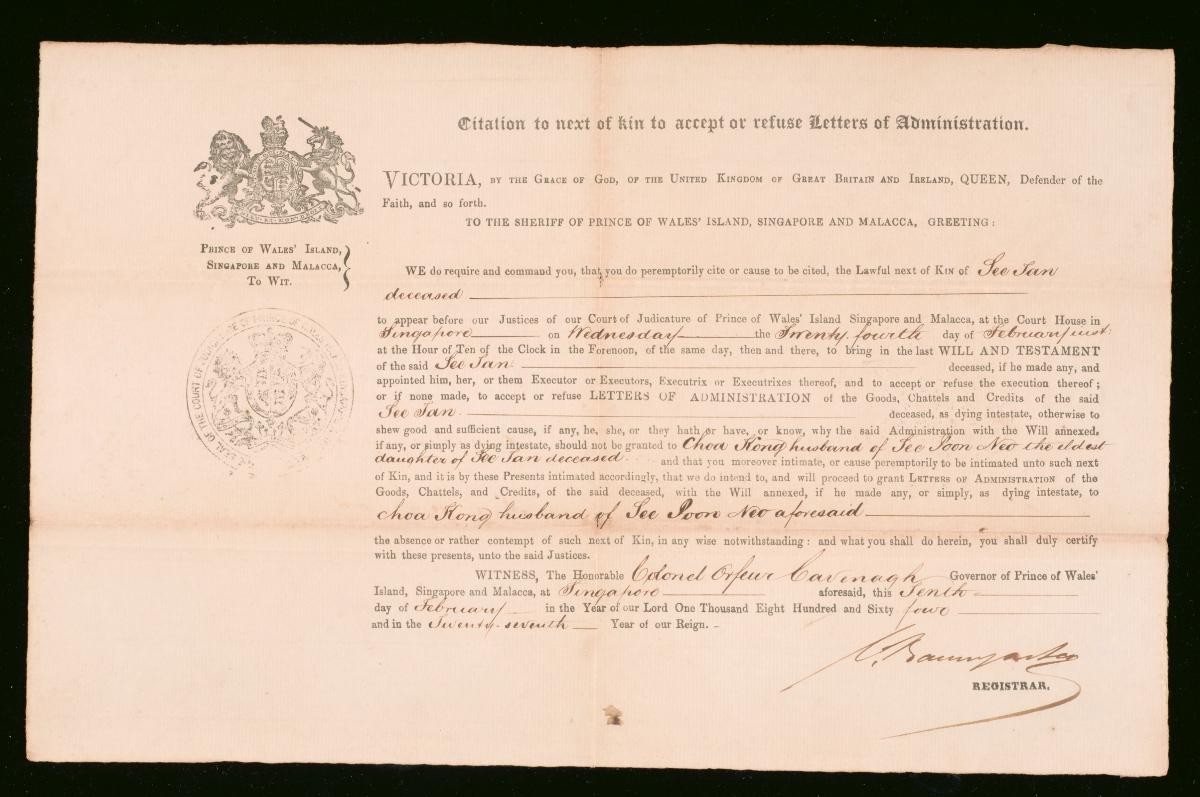 Citation to next of kin to accept or refuse Letters of Administration.
VICTORIA, BY THE GRACE OF GOD, OF THE UNITED KINGDOM OF GREAT BRITAIN AND IRELAND, QUEEN, Defender of the
Faith, and so forth.
TO THE SHERIFF OF PRINCE OF WALES' ISLAND, SINGAPORE AND MALACCA, GREETING:
PRINCE OF WALES' ISLAND,
SINGAPORE AND MALACCA,
TO WIT.
WE do require and command you, that you do peremptorily cite or cause to be cited, the Lawful next of KIN of See Tan
deceased
to appear before our Justices of our Court of Judicature of Prince of Wales' Island Singapore and Malacca, at the Court House in
Singapore on Wednesday the Twenty fourth day of February inst:
at the Hour of Ten of the Clock in the Forenoon, of the same day, then and there, to bring in the last WILL AND TESTAMENT
of the said See Tan deceased, if he made any, and
appointed him, her, or them Executor or Executors, Executrix or Executrixes thereof, and to accept or refuse the execution thereof;
or if none made, to accept or refuse LETTERS OF ADMINISTRATION of the Goods, Chattels and Credits of the said
See Tan. deceased, as dying intestate, otherwise to
shew good and sufficient cause, if any, he, she, or they hath or have, or know, why the said Administration with the Will annexed,
if any, or simply as dying intestate, should not be granted to Choa Kong husband of See Poon Neo the eldest
daughter of See Tan deceased and that you moreover intimate, or cause peremptorily to be intimated unto such next
of Kin, and it is by these Presents intimated accordingly, that we do intend to, and will proceed to grant LETTERS OF ADMINISTRATION of the
Goods, Chattels, and Credits, of the said deceased, with the Will annexed, if he made any, or simply, as dying intestate, to
Choa Kong husband of See Poon Neo aforesaid
the absence or rather contempt of such next of Kin, in any wise notwithstanding: and what you shall do herein, you shall duly certify
with these presents, unto the said Justices.
WITNESS, The Honorable Colonel Orfeur Cavenagh Governor of Prince of Wales'
Island, Singapore and Malacca, at Singapore aforesaid, this Tenth
day of February in the Year of our Lord One Thousand Eight Hundred and Sixty four
and in the Twenty-seventh Year of our Reign. -
C. Baumgarten
REGISTRAR.